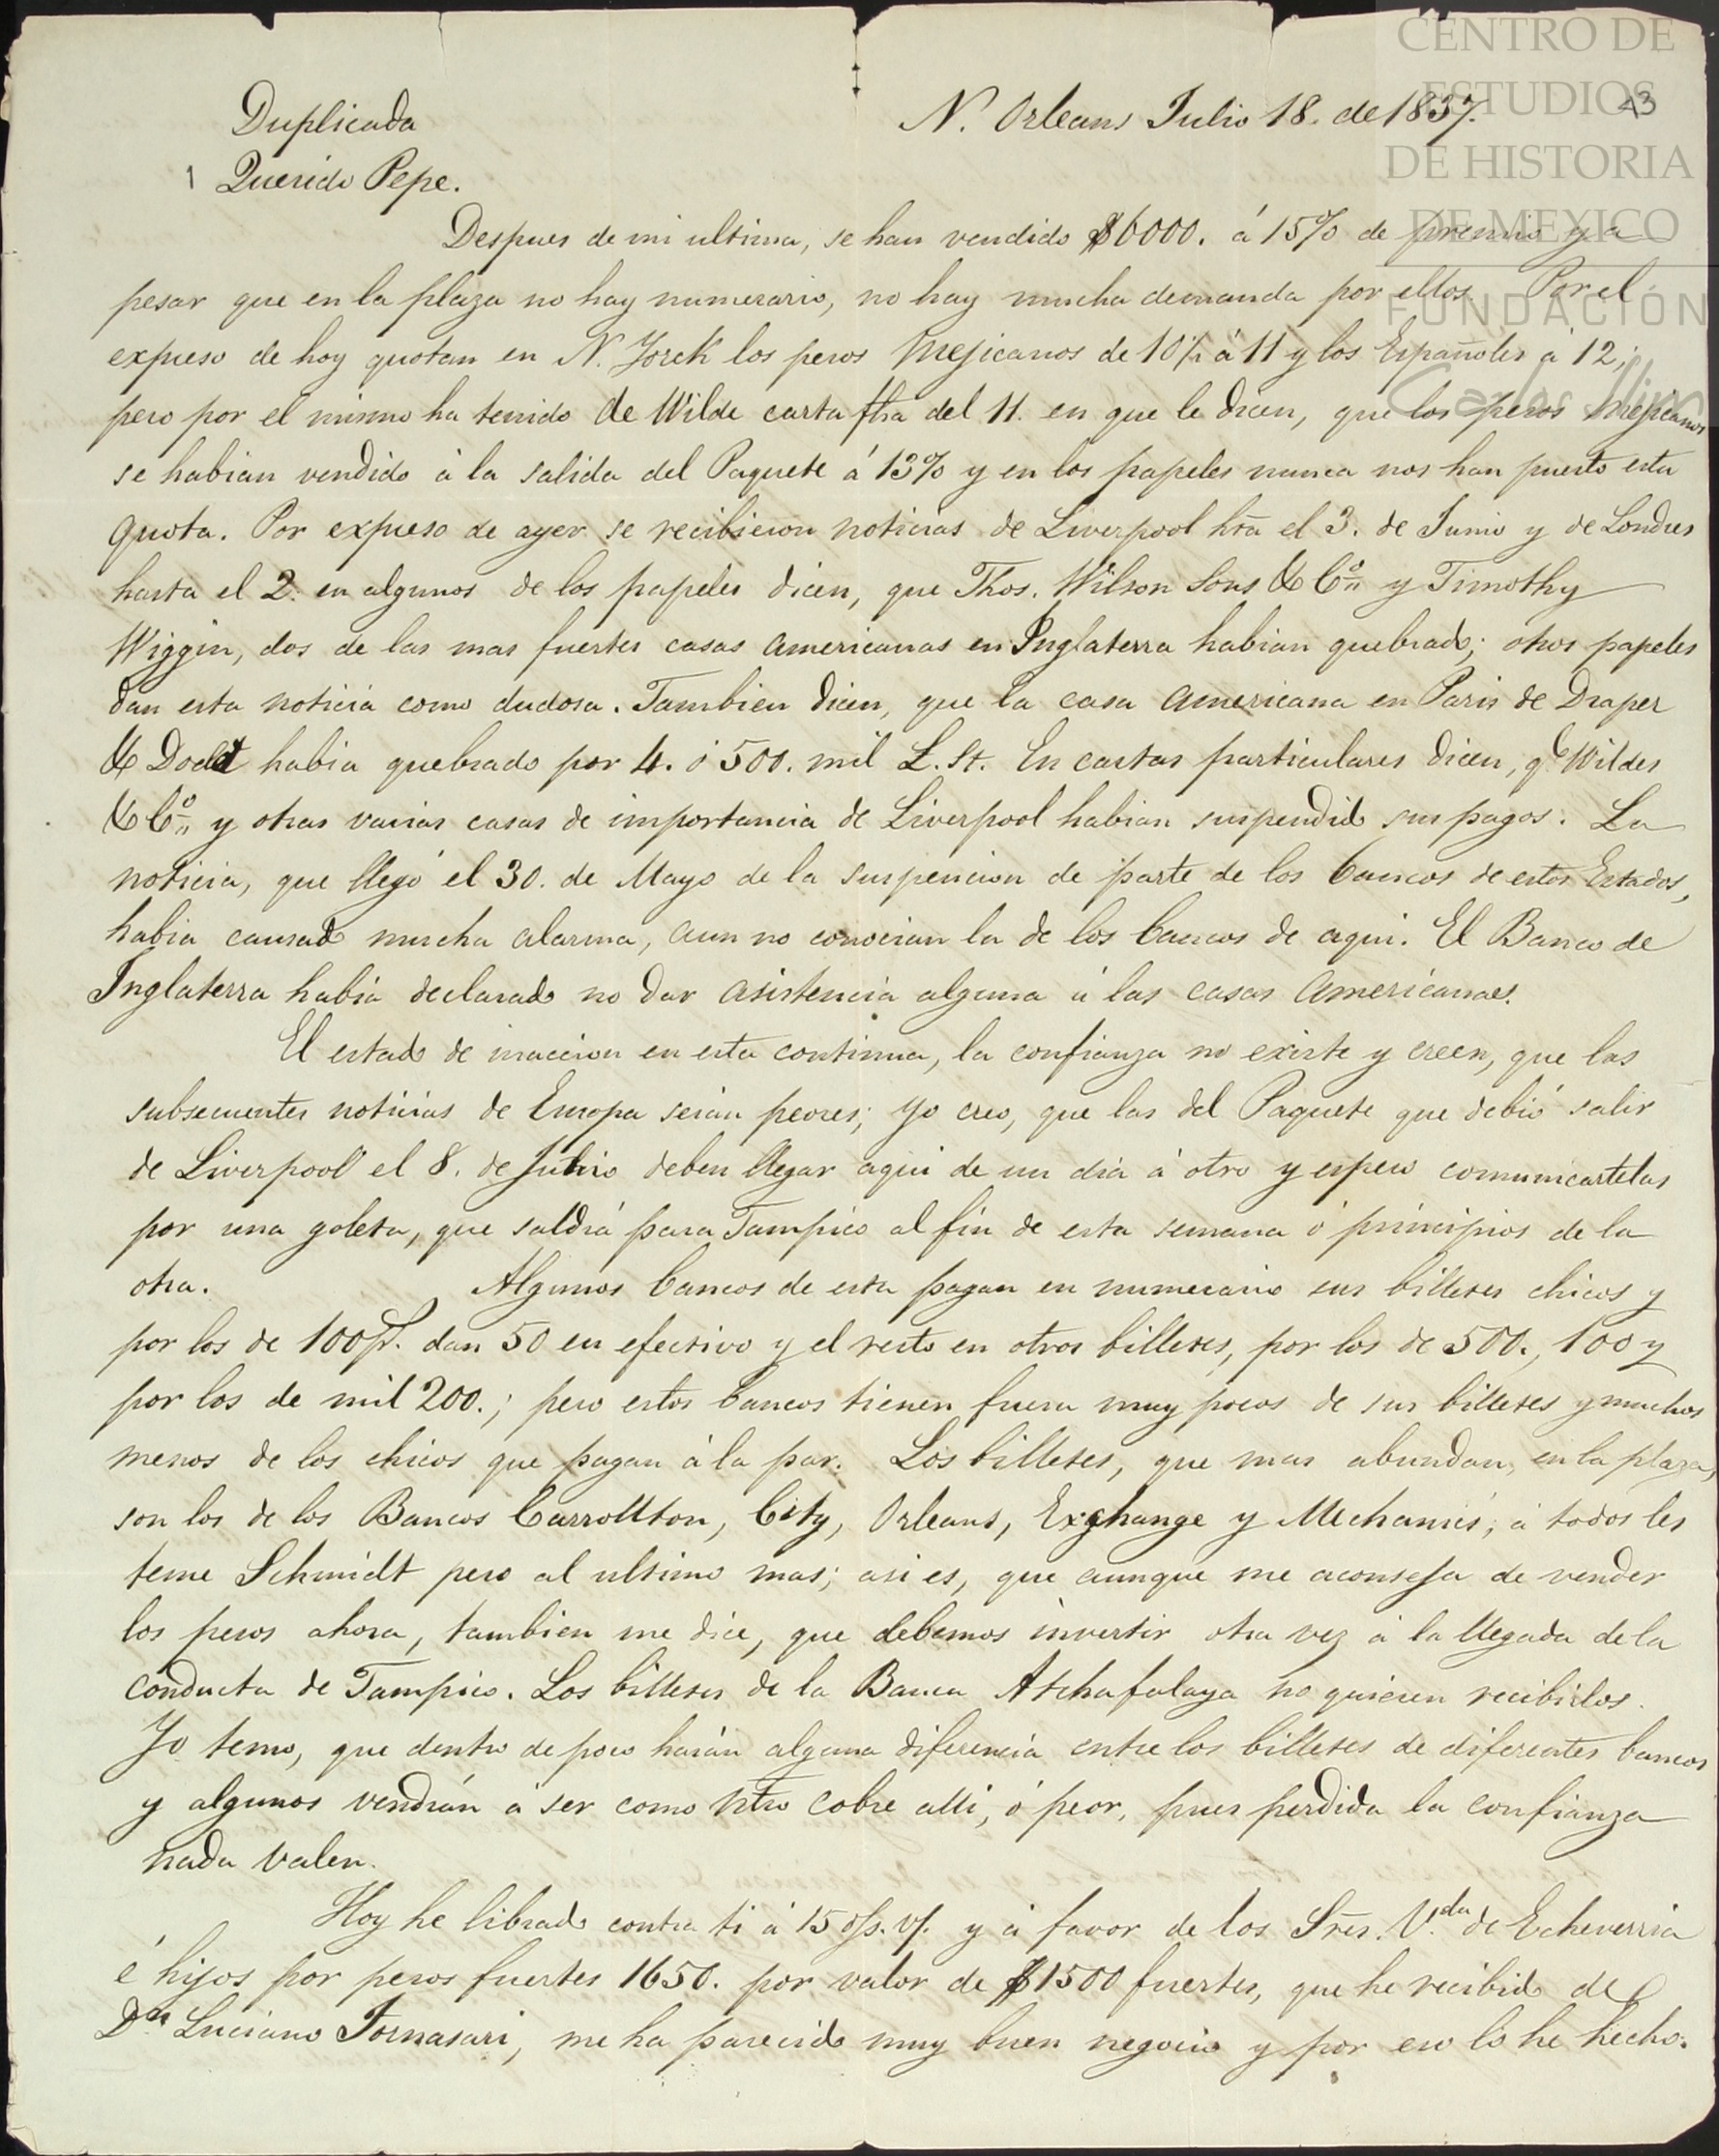 CENTRO DE
ESTUDIOS
DE HISTORIA
DE MEXICO
FUNDACIÓN
Carlos Slim
43
Duplicada
N. Orleans Julio 18. de 1837.
Querido Pepe.
Despues de mi ultima, se han vendido $6000. á 15% de premio y a
pesar que en la plaza no hay numerario, no hay mucha demanda por ellos. Por el
expreso de hoy quotan en N. Yorck los pesos Mejicanos de 10½ á 11 y los Españoles á 12;
pero por el mismo ha tenido de Wilde carta fha del 11. en que le dicen, que los pesos Mejicanos
se habian vendido á la salida del Paquete á 13% y en los papeles nunca nos han puesto esta
quota. Por expreso de ayer se recibieron noticias de Liverpool hta el 3. de Junio y de Londres
hasta el 2. en algunos de los papeles dicen, que Thos. Wilson Sons & Co. y Timothy
Wiggin, dos de las mas fuertes casas americanas en Inglaterra habian quebrado; otros papeles
dan esta noticia como dudosa. Tambien dicen, que la casa americana en Paris de Draper
& Dodd habia quebrado por 4. ó 500. mil L. St. En cartas particulares dicen, qe Wildes
& Co. y otras varias casas de importancia de Liverpool habian suspendido sus pagos. La
noticia, que llegó el 30. de Mayo de la suspencion de parte de los bancos de estos Estados,
habia causado mucha alarma, aun no conocian la de los bancos de aqui. El Banco de
Inglaterra habia declarado no dar asistencia alguna á las casas americanas.
El estado de inaccion en esta continua, la confianza no existe y creen, que las
subsecuentes noticias de Europa serán peores; yo creo, que las del Paquete que debió salir
de Liverpool el 8. de Junio deben llegar aqui de un dia á otro y espero comunicartelas
por una goleta, que saldrá para Tampico al fin de esta semana ó principios de la
otra. Algunos bancos de esta pagan en numerario sus billetes chicos y
por los de 100 ps. dan 50 en efectivo y el resto en otros billetes, por los de 500., 100 y
por los de mil 200.; pero estos bancos tienen fuera muy pocos de sus billetes y muchos
menos de los chicos que pagan á la par. Los billetes, que mas abundan, en la plaza,
son los de los Bancos Carrollton, City, Orleans, Exchange y Mechanics; á todos les
teme Schmidt pero al ultimo mas; asi es, que aunque me aconseja de vender
los pesos ahora, tambien me dice, que debemos invertir otra vez á la llegada de la
conducta de Tampico. Los billetes de la Banca Atchafalaya no quieren recibirlos.
Yo temo, que dentro de poco harán alguna diferencia entre los billetes de diferentes bancos
y algunos vendrán á ser como ntro cobre alli, ó peor, pues perdida la confianza
nada valen.
Hoy he librado contra ti á 15 d/s. v/. y á favor de los Sres. Vda de Echeverria
é hijos por pesos fuertes 1650. por valor de $1500 fuertes, que he recibido de
Dn Luciano Fornasari, me ha parecido muy buen negocio y por eso lo he hecho.